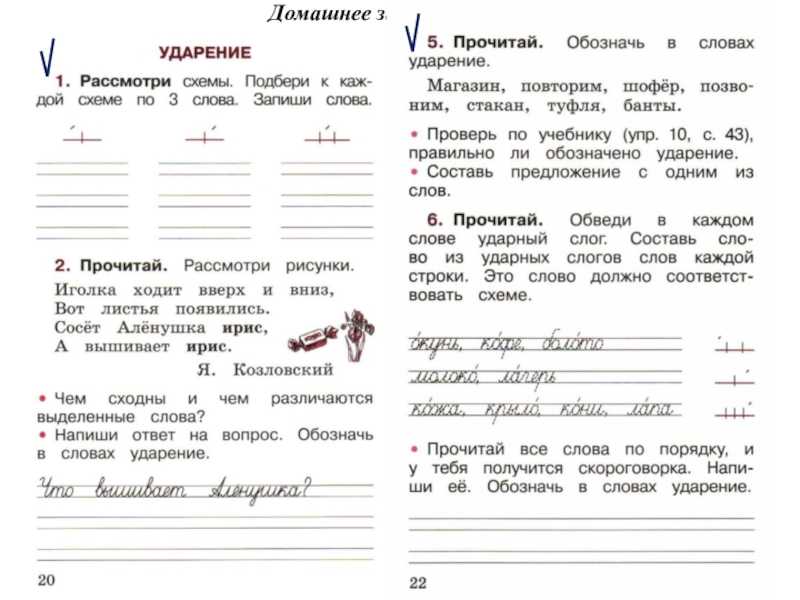 Домашнее з
УДАРЕНИЕ
1. Рассмотри схемы. Подбери к каж-
дой схеме по 3 слова. Запиши слова.
2. Прочитай. Рассмотри рисунки.
Иголка ходит вверх и вниз,
Вот листья появились.
Сосёт Алёнушка ирис,
А вышивает ирис.
Я. Козловский
• Чем сходны и чем различаются
выделенные слова?
• Напиши ответ на вопрос. Обозначь
в словах ударение.
Что вышивает Аленушка?
20
5. Прочитай. Обозначь в словах
ударение.
Магазин, повторим, шофёр, позво-
ним, стакан, туфля, банты.
• Проверь по учебнику (упр. 10, с. 43),
правильно ли обозначено ударение.
• Составь предложение с одним из
слов.
6. Прочитай. Обведи в каждом
слове ударный слог. Составь сло-
во из ударных слогов слов каждой
строки. Это слово должно соответст-
вовать схеме.
о́кунь, ко́фе, боло́то
молоко́, ла́герь
ко́жа, крыло́, ко́ни, ла́па
• Прочитай все слова по порядку, и
у тебя получится скороговорка. Напи-
ши её. Обозначь в словах ударение.
22